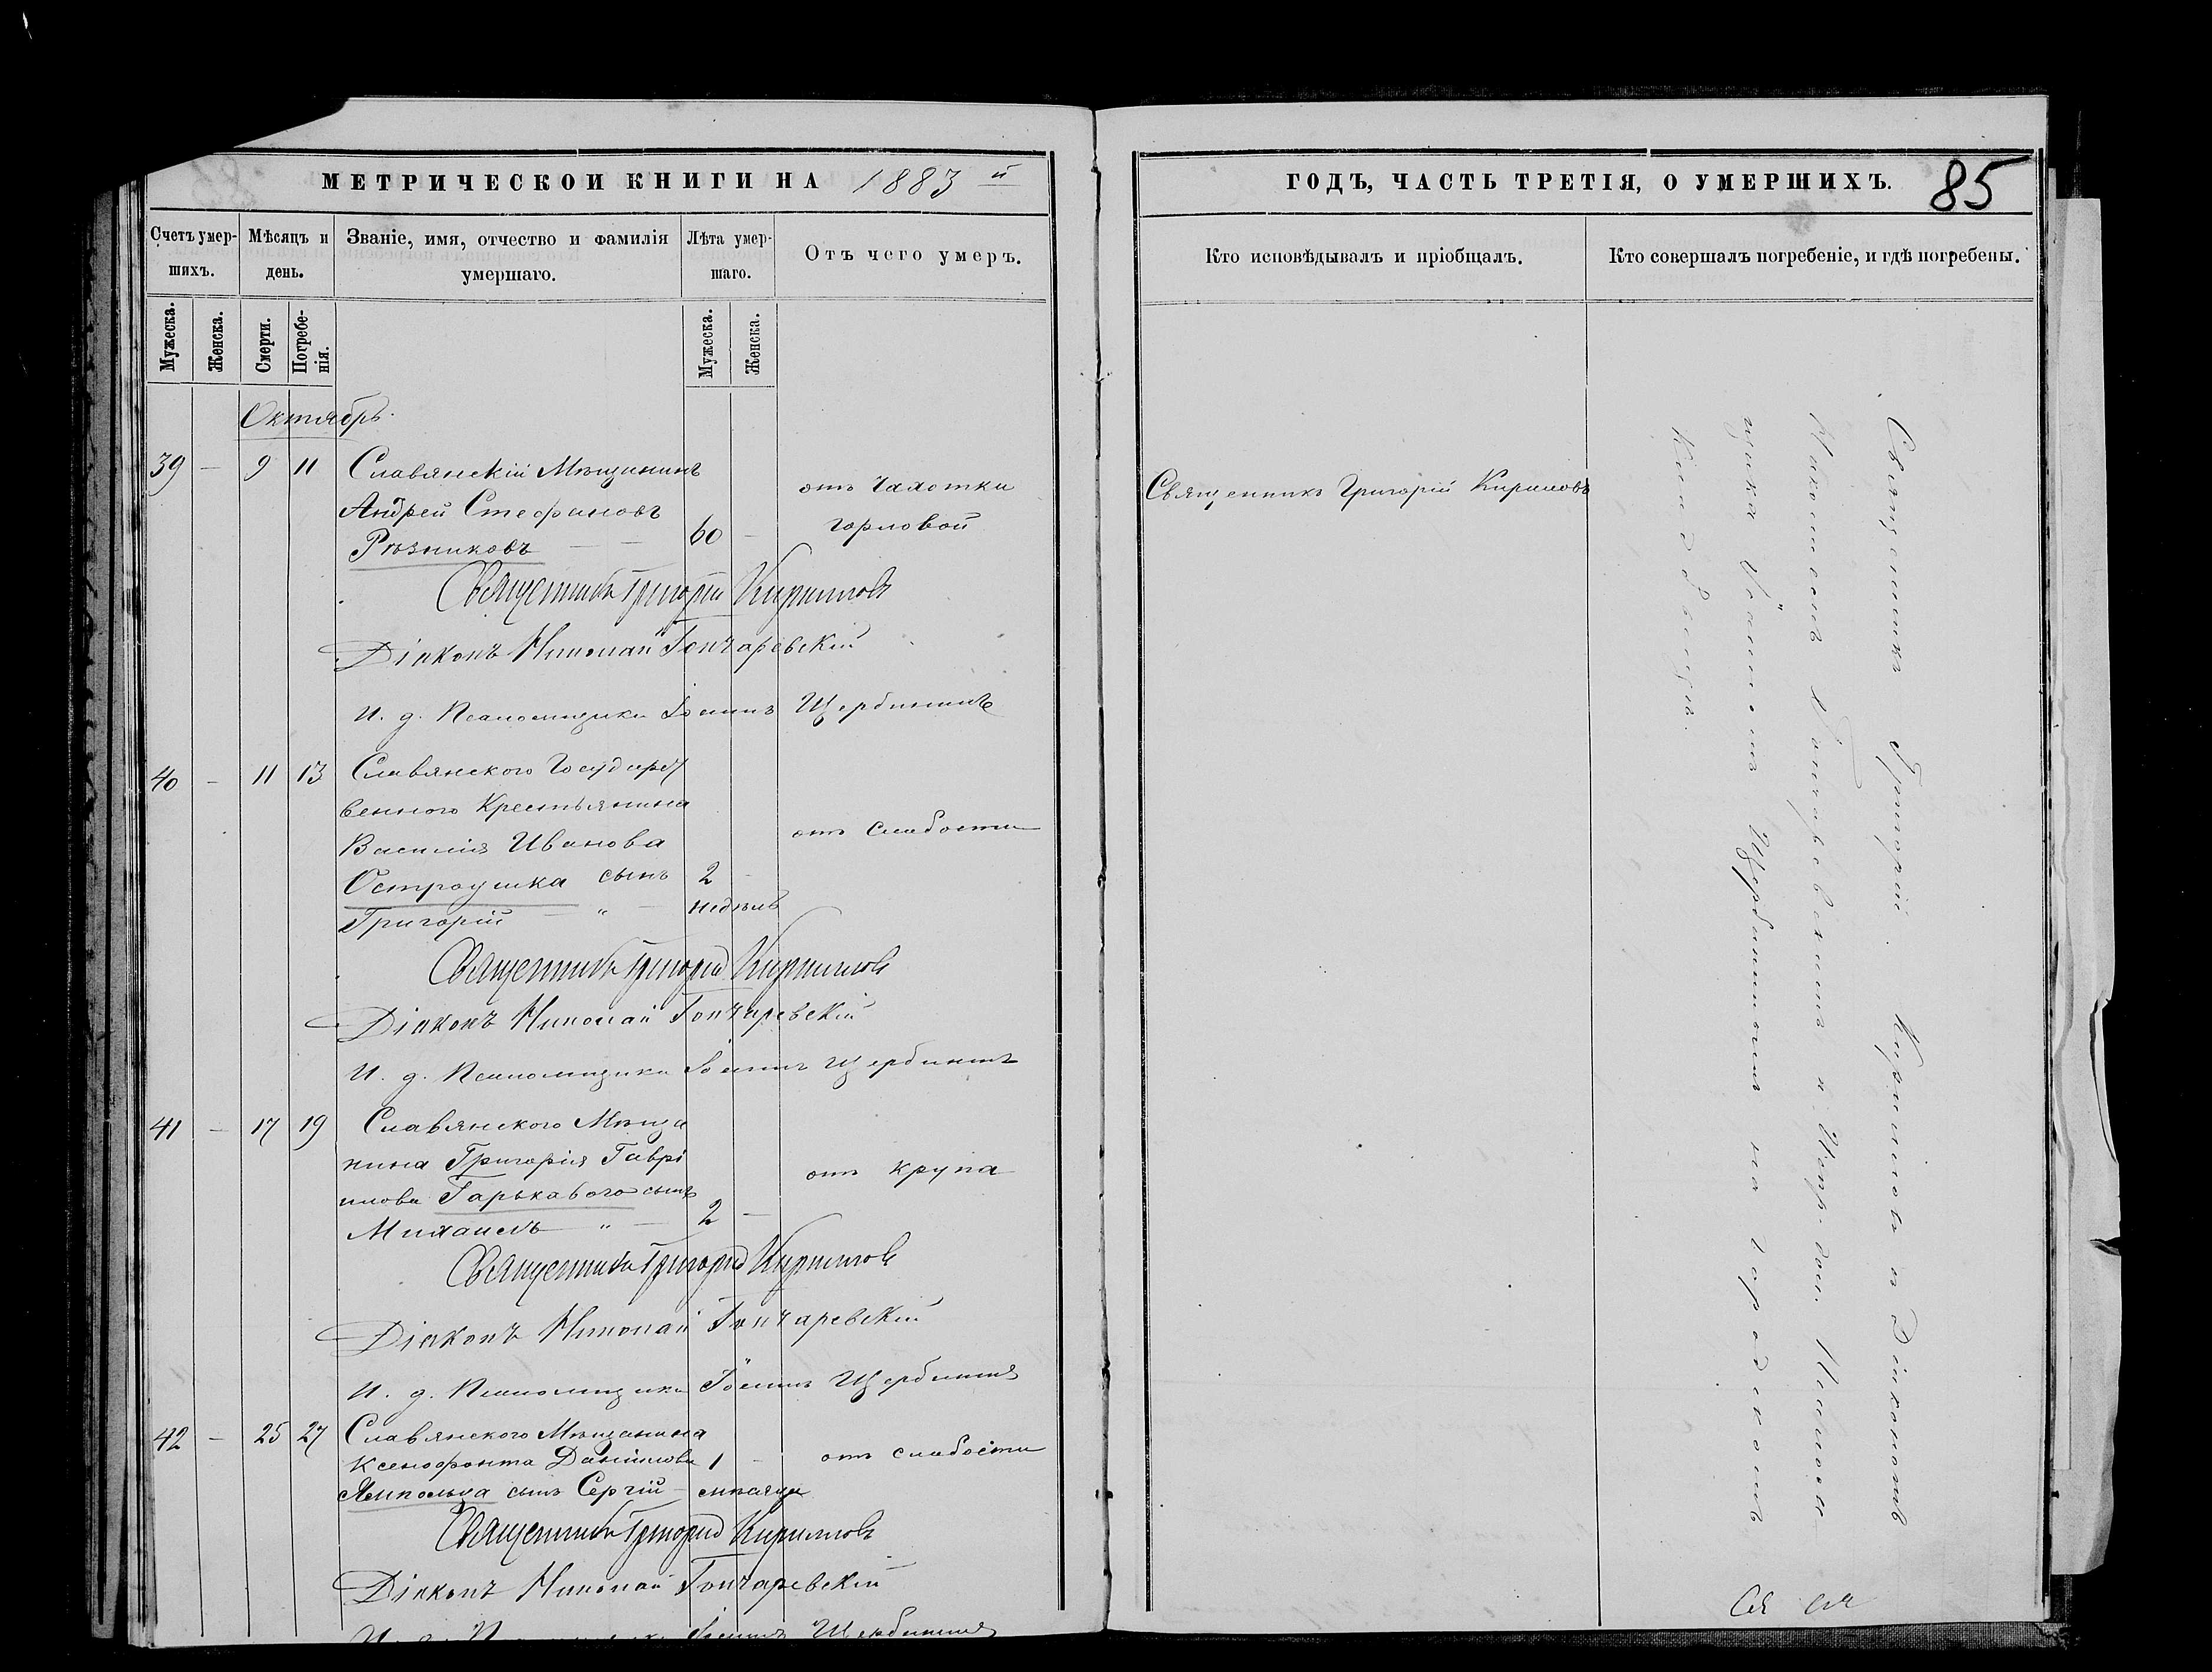 МЕТРИЧЕСКОЙ КНИГИ НА 1883 й
Счетъ умер-
шихъ.
Мѣсяцъ и
день.
Званіе, имя, отчество и фамилія
умершаго.
Лѣта умер-
шаго.
Отъ чего умеръ.
Мужеска.
Женска.
Смерти.
Погребе-
нія.
Мужеска.
Женска.
Октябрь
39 — 9 11 Славянскій Мѣщанинъ
Андрей Стефановъ
Рѣзниковъ — — 60 —
отъ Чахотки
горловой
Священникъ Григорій Кирилловъ
Діаконъ Николай Гончаревскій
И. д. Псаломщика Іоаннъ Щербининъ
40 — 11 13 Славянского Государст
венного Крестьянина
Василія Иванова
Остроушка сынъ 2 —
Григорій — „ — недѣль
отъ слабости
Священникъ Григорій Кирилловъ
Діаконъ Николай Гончаревскій
И. д. Псаломщика Іоаннъ Щербининъ
41 — 17 19 Славянского Мѣща
нина Григорія Гаврі
илова Гарькавого сынъ
Михаилъ „ — 2 —
отъ крупа
Священникъ Григорій Кирилловъ
Діаконъ Николай Гончаревскій
И. д. Псаломщика Іоаннъ Щербининъ
42 — 25 27 Славянского Мѣщанина
Ксенофонта Даніилова 1 — отъ слабости
сынъ Сергій — мѣсяца
Священникъ Григорій Кирилловъ
Діаконъ Николай Гончаревскій
Іоаннъ Щербининъ
ГОДЪ, ЧАСТЬ ТРЕТІЯ, О УМЕРШИХЪ. 85
Кто исповѣдывалъ и пріобщалъ.
Кто совершалъ погребеніе, и гдѣ погребены.
Священникъ Григорій Кириловъ
Священникъ Григорій Кирилловъ и Діакономъ
Николаемъ Гончаревскимъ и Испр. дол. Псаломщ
щика Іоанномъ Щербининымъ на городскомъ
Кладбищѣ.